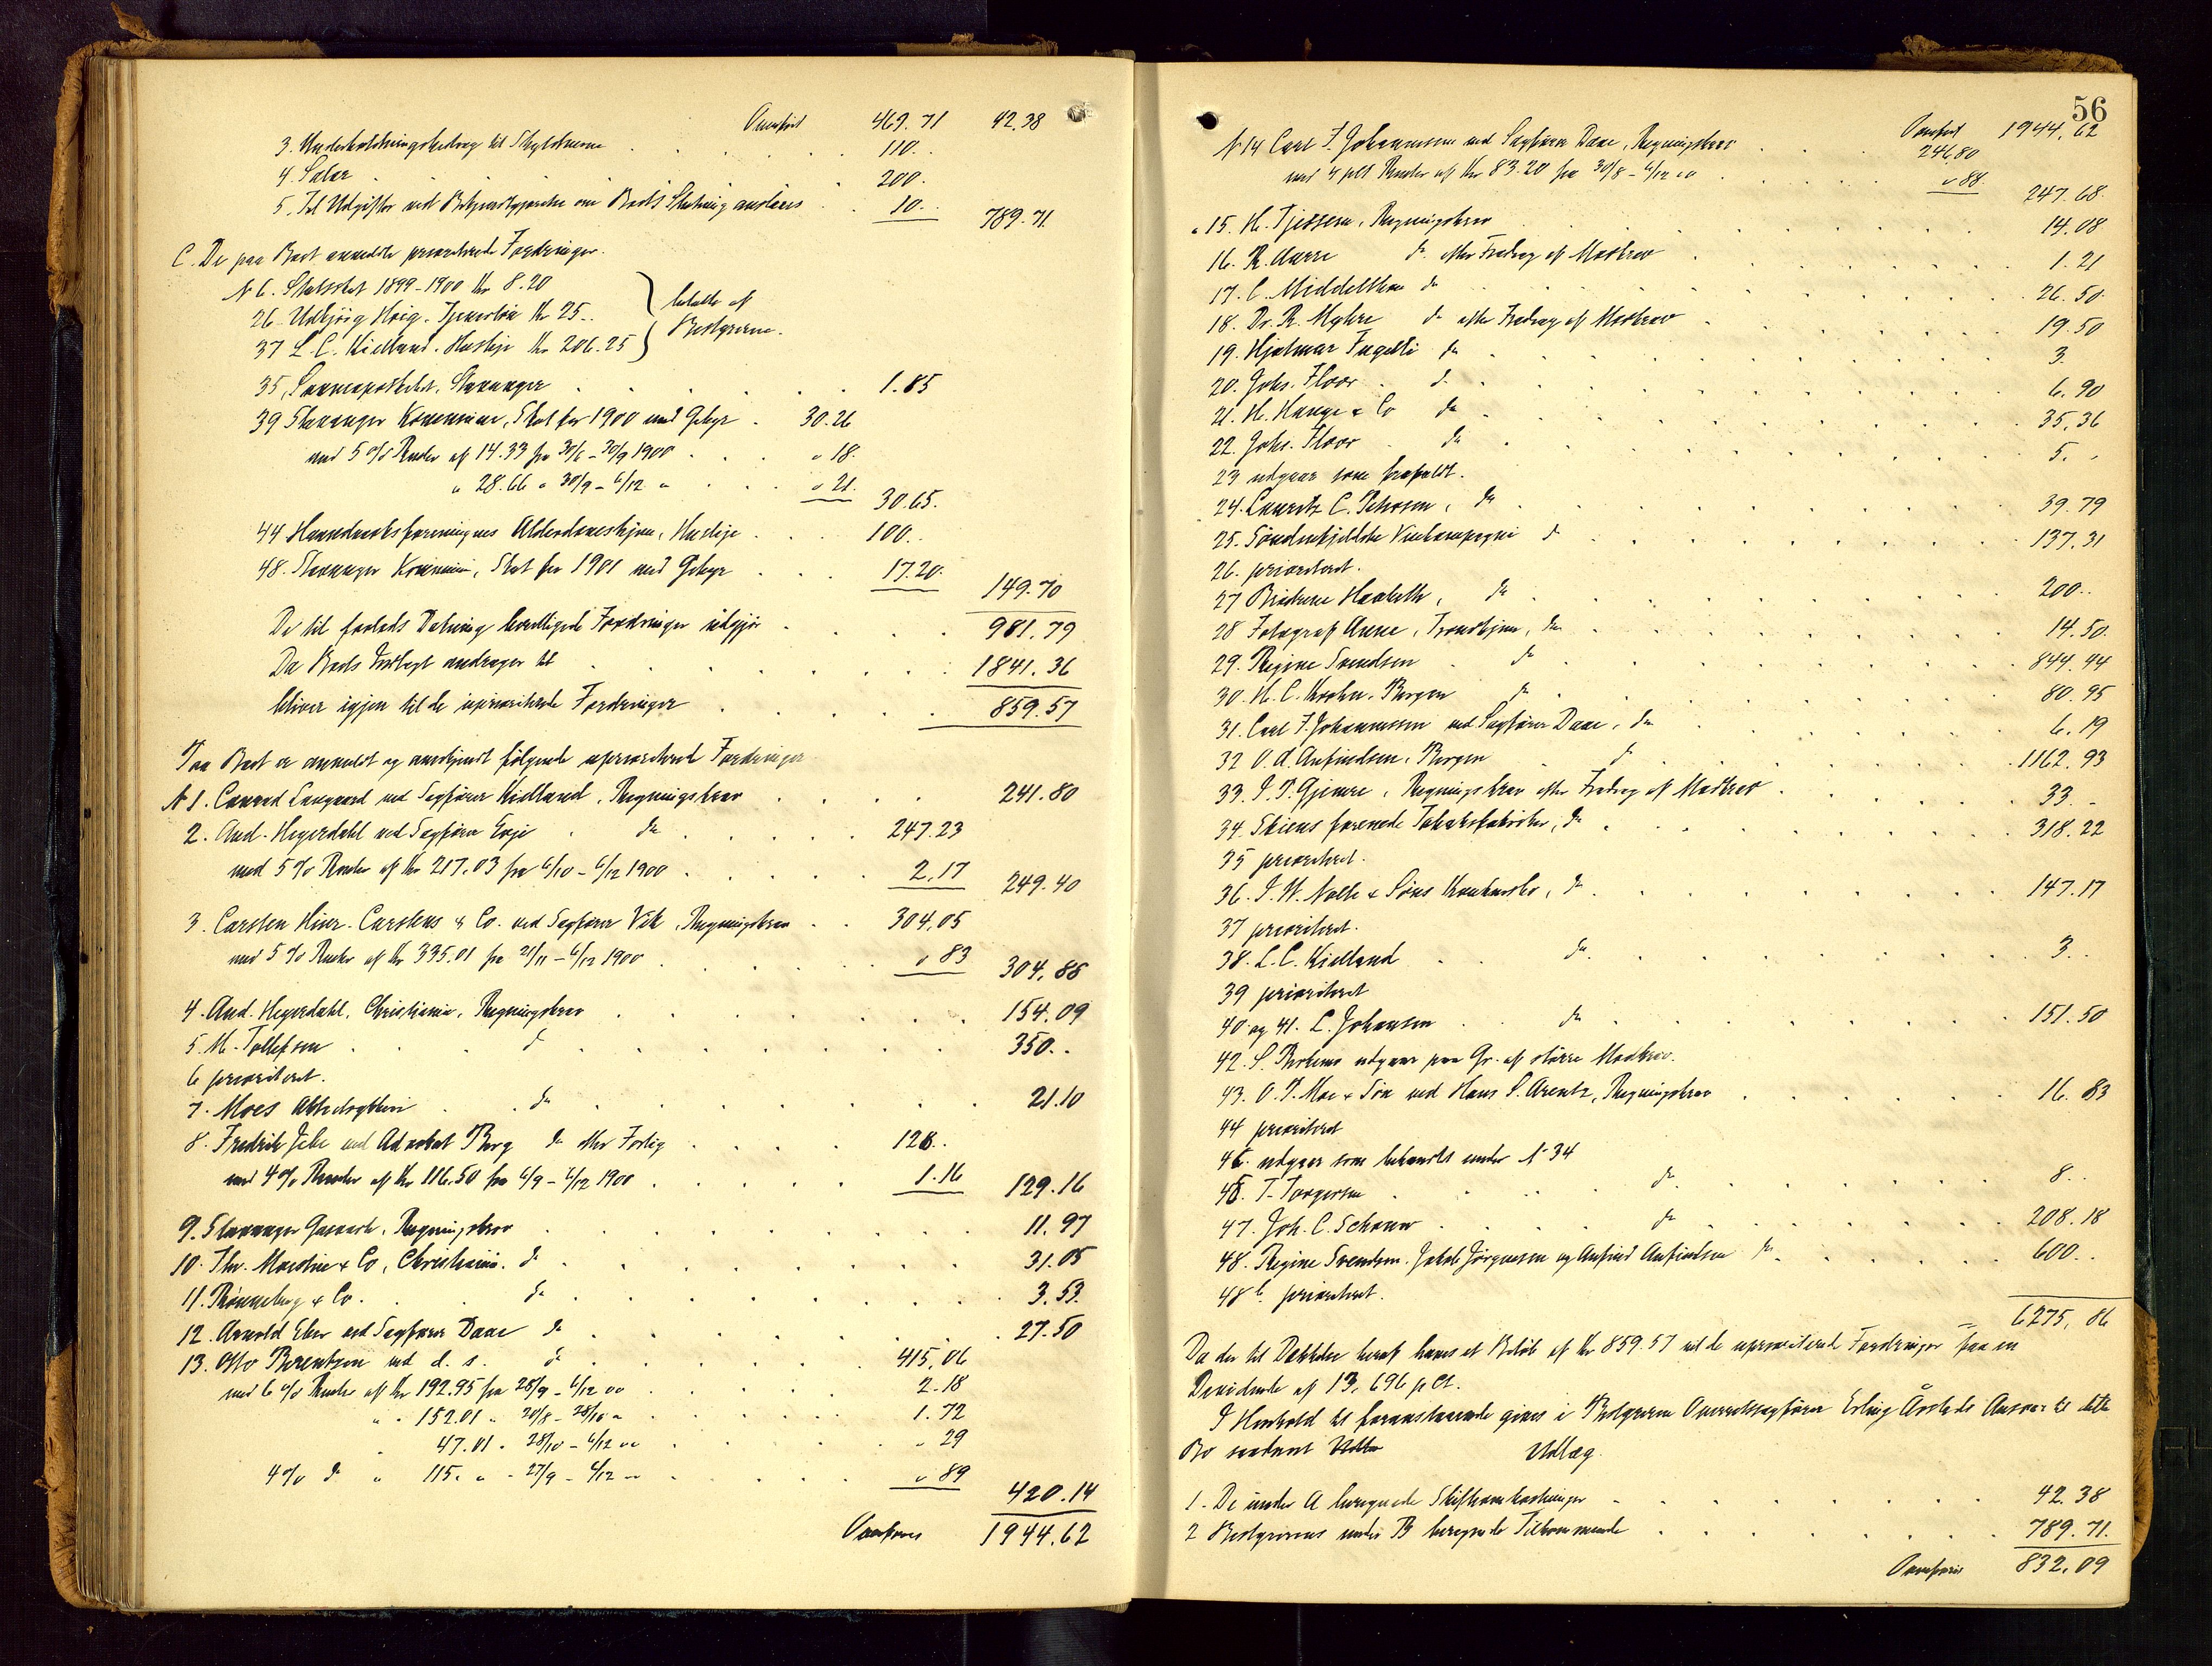 Overført 469.71 42.38
3. Underholdningsbidrag til Skyldnerne 110.
4. Salær 200.
5. Til Udgifter ved Bekjendtgjørelse om Boets Slutning ansættes 10. 789.71
C. De paa Boet anmeldte prioriterede Fordringer.
N 6. Statsskat 1899-1900 Kr 8.20
26. Udbjørg Høig. Tjenerløn Kr 25..
37 L. C. Kielland. Husleje Kr 206.25 } betalte af Bestyreren.
35, Stavanger 1.85
39 Stavanger Kommune, Skat for 1900 med Gebyr 30.26
med 5 % Renter af 14.33 fra 30/6 - 30/9 1900 " 18.
" 28.66 " 30/9 - 6/12 " " 21. 30.65.
44 Haandverksforeningens Alderdomshjem, Husleje 100..
48. Stavanger Kommune, Skat for 1901 med Gebyr 17.20. 149.70
De til forlods Dækning berettigede Fordringer udgjør 981.79
Da Boets Indtægt andrager til 1841.36
bliver igjen til de uprioriterede Fordringer 859.57
Paa Boet er anmeldt og anerkjendt følgende uprioriterede Fordringer
N 1. Conrad Langaard ved Sagfører Kielland, Regningskrav 241.80
2. And. Hegerdahl ved Sagfører Evje do 247.23
med 5 % Renter af Kr 217.03 fra 6/10 - 6/12 1900 2.17 249.40
3. Carsten Hinr. Carstens & Co. ved Sagfører Vik, Regningskrav 304.05
med 5 % Renter af Kr 335.01 fra 21/11 - 6/12 1900 " 83 304.88
4. And. Hegerdahl, Christiania, Regningskrav 154.09
5. M. Tollefsen do 350..
6 prioriteret.
7. Moes do 21.10
8. Fredrik Jebe ved Advokat Berg do efter Forlig 128..
med 4 % Renter af Kr 116.50 fra 6/9 - 6/12 1900 1.16 129.16
9. Stavanger Gasverk, Regningskrav 11.97
10. Thv. & Co, Christiania. do 31.05
11. Rønneberg & Co. do 3.53.
12. Arnold Eber ved Sagfører Daae do 27.50
13. Otto Berentzen ved d. s. do 415,06
med 6 % Renter af Kr 192.95 fra 28/9 - 6/12 00 2.18
" " 152.01 " 20/8 - 28/10 " 1.72
" 47.01 " 28/10 - 6/12 00 " 29
4 % do " 115. " - 27/9 - 6/12 " " 89 420.14
Overføres 1944.62
56
Overført 1944,62
N 14 Carl F. Johannessen ved Sagfører Daae, Regningskrav 246.80
med 4 pCt Renter af Kr 83.20 fra 30/8 - 6/12 00 " 88. 247.68.
" 15. H. Tjessem, Regningskrav 14.08
16. R. Aarre do efter Fradrag af Modkrav 1.21
17. C. Middelthon do 26.50.
18. Dr. R. Myhre do efter Fradrag af Modkrav 19.50
19. Hjalmar Fugelli do 3
20. Johs. Floor do 6.90
21. H. Hauge & Co do 35.36
22. Johs. Floor do 5..
23 udgaar som frafaldt.
24. Lauritz C. Pettersen, do 39.79
25. Søndenfjeldske Vinkompagni do 137.31
26. prioriteret.
27 Brødrene Haabeth, do 200..
28 Fotograf Anne, Trondhjem, do 14.50.
29. Regine Svendsen do 844.44
30. H. C. Krohn. Bergen do 80.95
31. Carl F. Johannessen ved Sagfører Daae, do 6.19
32 O. A. Anfindsen, Bergen do 1162.93
33. I. P. Gjemre, Regningskrav efter Fradrag af Modkrav 33.-
34. Skiens forenede Tobaksfabriker, do 318.22
35 prioriteret.
36. I. W. Nolte & Søns Konkursbo, do 147.17
37 prioriteret.
38. L. C. Kielland do 3..
39 prioriteret
40 og 41. L. Johansen do 151.50
42. S. udgaar paa Gr. af større Modkrav.
43. O. P. Moe & Søn ved Hans S. Arentz, Regningskrav 16.83
44 prioriteret
46. udgaar som behandlet under N 34
45. T. Torgersen do 8..
47. Joh. C. Schouw do 208.18
48. Regine Svendsen, Jakob Jørgensen og Anfind Anfindsen do 600..
48 b. prioriteret.
6275,86
Da der til Dækkelse heraf haves et Beløb af Kr 859.57 vil de uprioriterede Fordringer faa en
Dividende af 13,696 p Ct.
I Henhold til foranstaaende gives i Bestyreren Overretssagfører Erling Årstads Ansvar til dette
Bo saadant
Udlæg.
1. De under A beregnede Skifteomkostninger 42.38
2 Bestyrerens under B beregnede Tilkommende 789.71.
Overføres 832.09